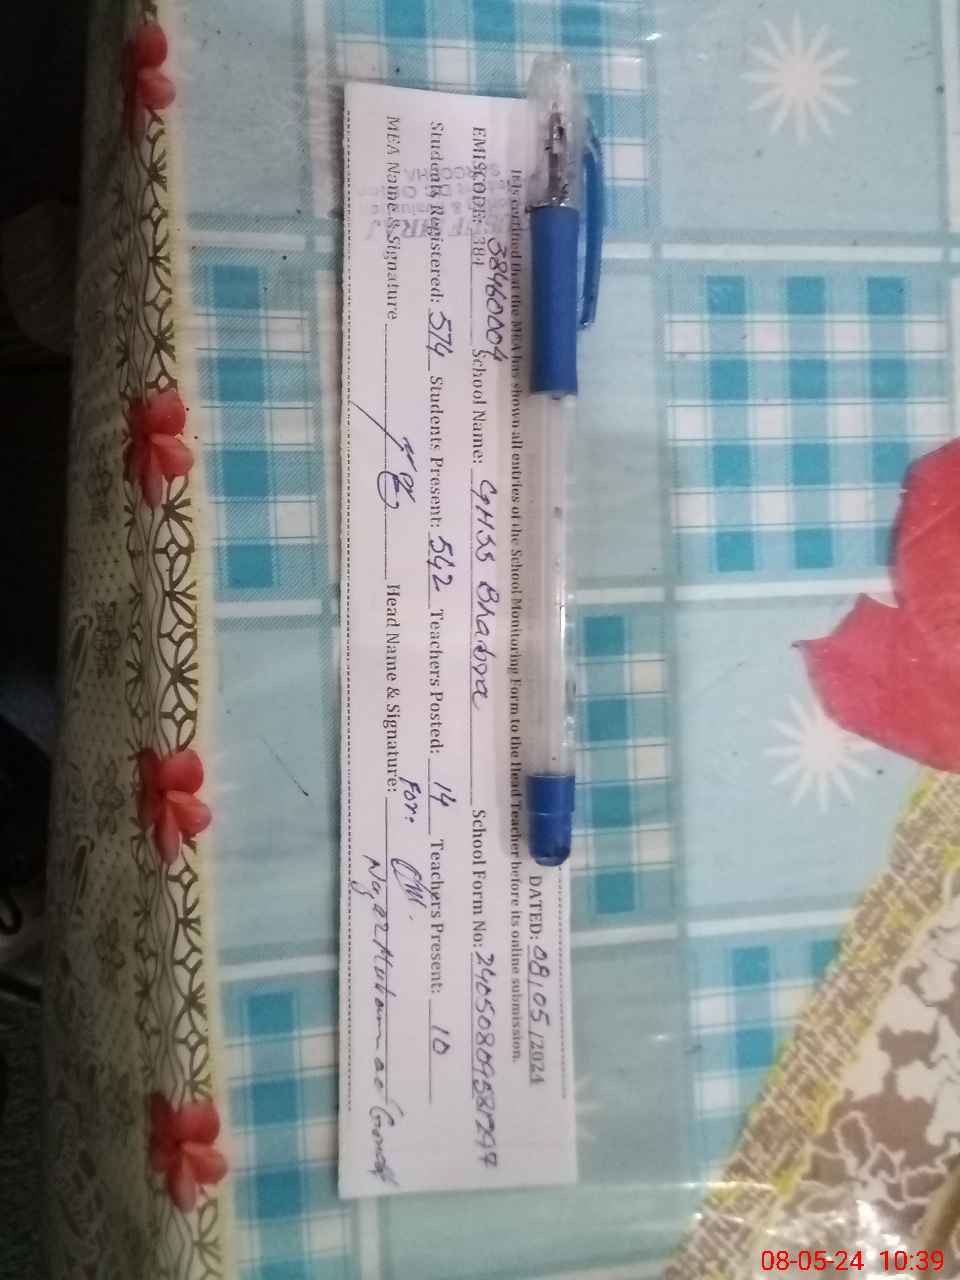 DATED: 08/05/2024
It is certified that the MEA has shown all entries of the School Monitoring Form to the Head Teacher before its online submission.
EMISCODE: 384 38460004 School Name: GHSS Bhabra School Form No:
Students Registered: 574 Students Present: 542 Teachers Posted: 14 Teachers Present: 10
MEA Name & Signature Head Name & Signature: For:
08-05-24 10:39